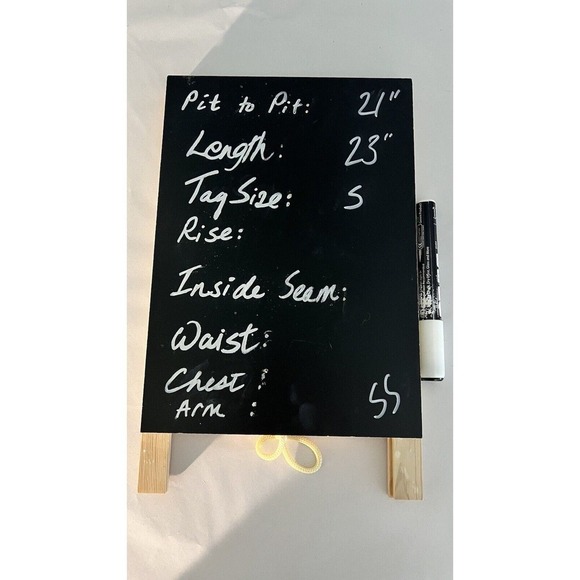 Pit to Pit: 21"
Length: 23"
Tag Size: S
Rise:
Inside Seam:
Waist:
Chest:
Arm: SS